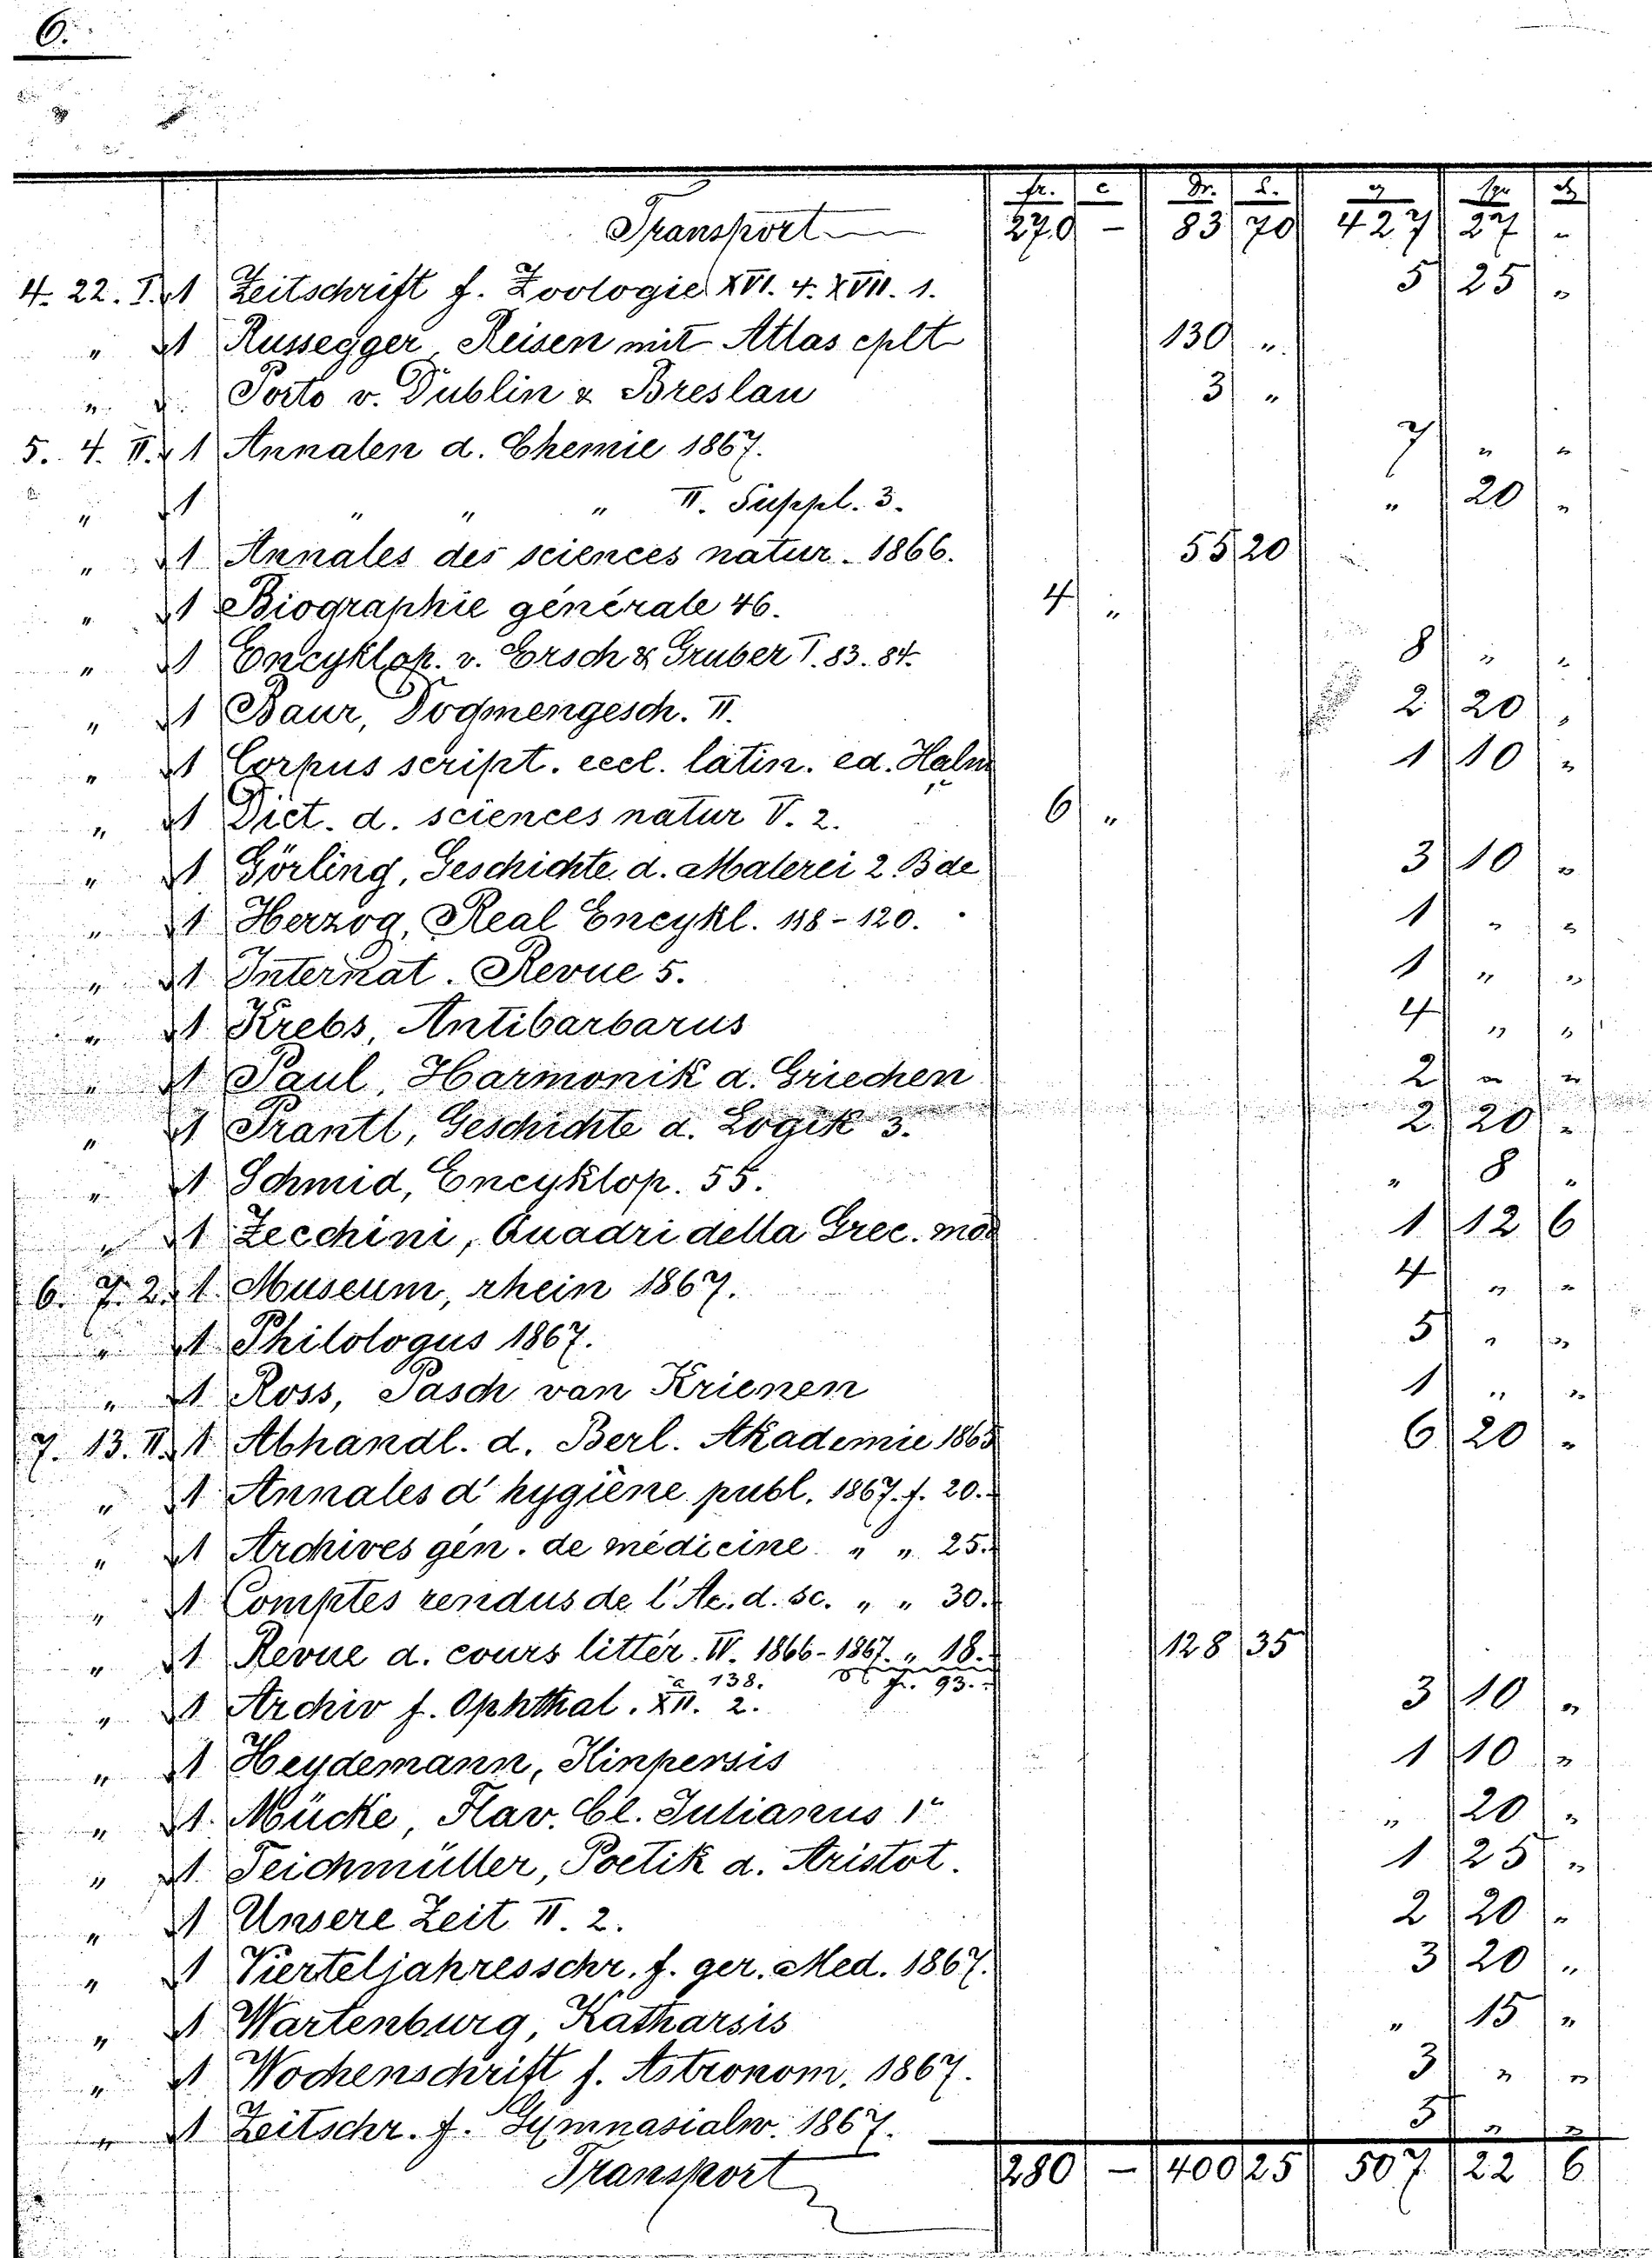 6.
fr. c Dr. L. sgr
Transport 270 – 83 70 427 27 "
4. 22. I. 1 Zeitschrift f. Zoologie XVI. 4. XVII. 1. 5 25 "
" 1 Russegger, Reisen mit Atlas cplt 130 "
" Porto v. Dublin & Breslau 3 "
5. 4. II. 1 Annalen d. Chemie 1867. 7 " "
" 1 " " " II. Suppl. 3. " 20 "
" 1 Annales des sciences natur. 1866. 55 20
" 1 Biographie générale 46. 4 "
" 1 Encyklop. v. Ersch & Gruber I. 83. 84. 8 " "
" 1 Baur, Dogmengesch. II. 2 20 "
" 1 Corpus script. eccl. latin. ed. Halm 1 10 "
" 1 Dict. d. sciences natur V. 2. 6 "
" 1 Görling, Geschichte d. Malerei 2 Bde 3 10 "
" 1 Herzog, Real Encykl. 118–120. 1 " "
" 1 Internat. Revue 5. 1 " "
" 1 Krebs, Antibarbarus 4 " "
" 1 Paul, Harmonik d. Griechen 2 " "
" 1 Prantl, Geschichte d. Logik 3. 2 20 "
" 1 Schmid, Encyklop. 55. " 8 "
" 1 Zecchini, Quadri della Grec. mod 1 12 6
6. 7. 2. 1 Museum, rhein 1867. 4 " "
" 1 Philologus 1867. 5 " "
" 1 Ross, Pasch van Krienen 1 " "
7. 13. II. 1 Abhandl. d. Berl. Akademie 1865 6 20 "
" 1 Annales d'hygiène publ. 1867. f. 20.
" 1 Archives gén. de médicine " " 25.
" 1 Comptes rendus de l'Ac. d. sc. " " 30.
" 1 Revue d. cours littér. IV. 1866–1867. " 18. 128 35
à 138. fr. 93.
" 1 Archiv f. Ophthal. XII. 2. 3 10 "
" 1 Heydemann, Iliupersis 1 10 "
" 1 Mücke, Flav. Cl. Julianus 1 " 20 "
" 1 Teichmüller, Poetik d. Aristot. 1 25 "
" 1 Unsere Zeit II. 2. 2 20 "
" 1 Vierteljahresschr. f. ger. Med. 1867. 3 20 "
" 1 Wartenburg, Katharsis " 15 "
" 1 Wochenschrift f. Astronom. 1867. 3 " "
" 1 Zeitschr. f. Gymnasialw. 1867. 5 " "
Transport 280 – 400 25 507 22 6